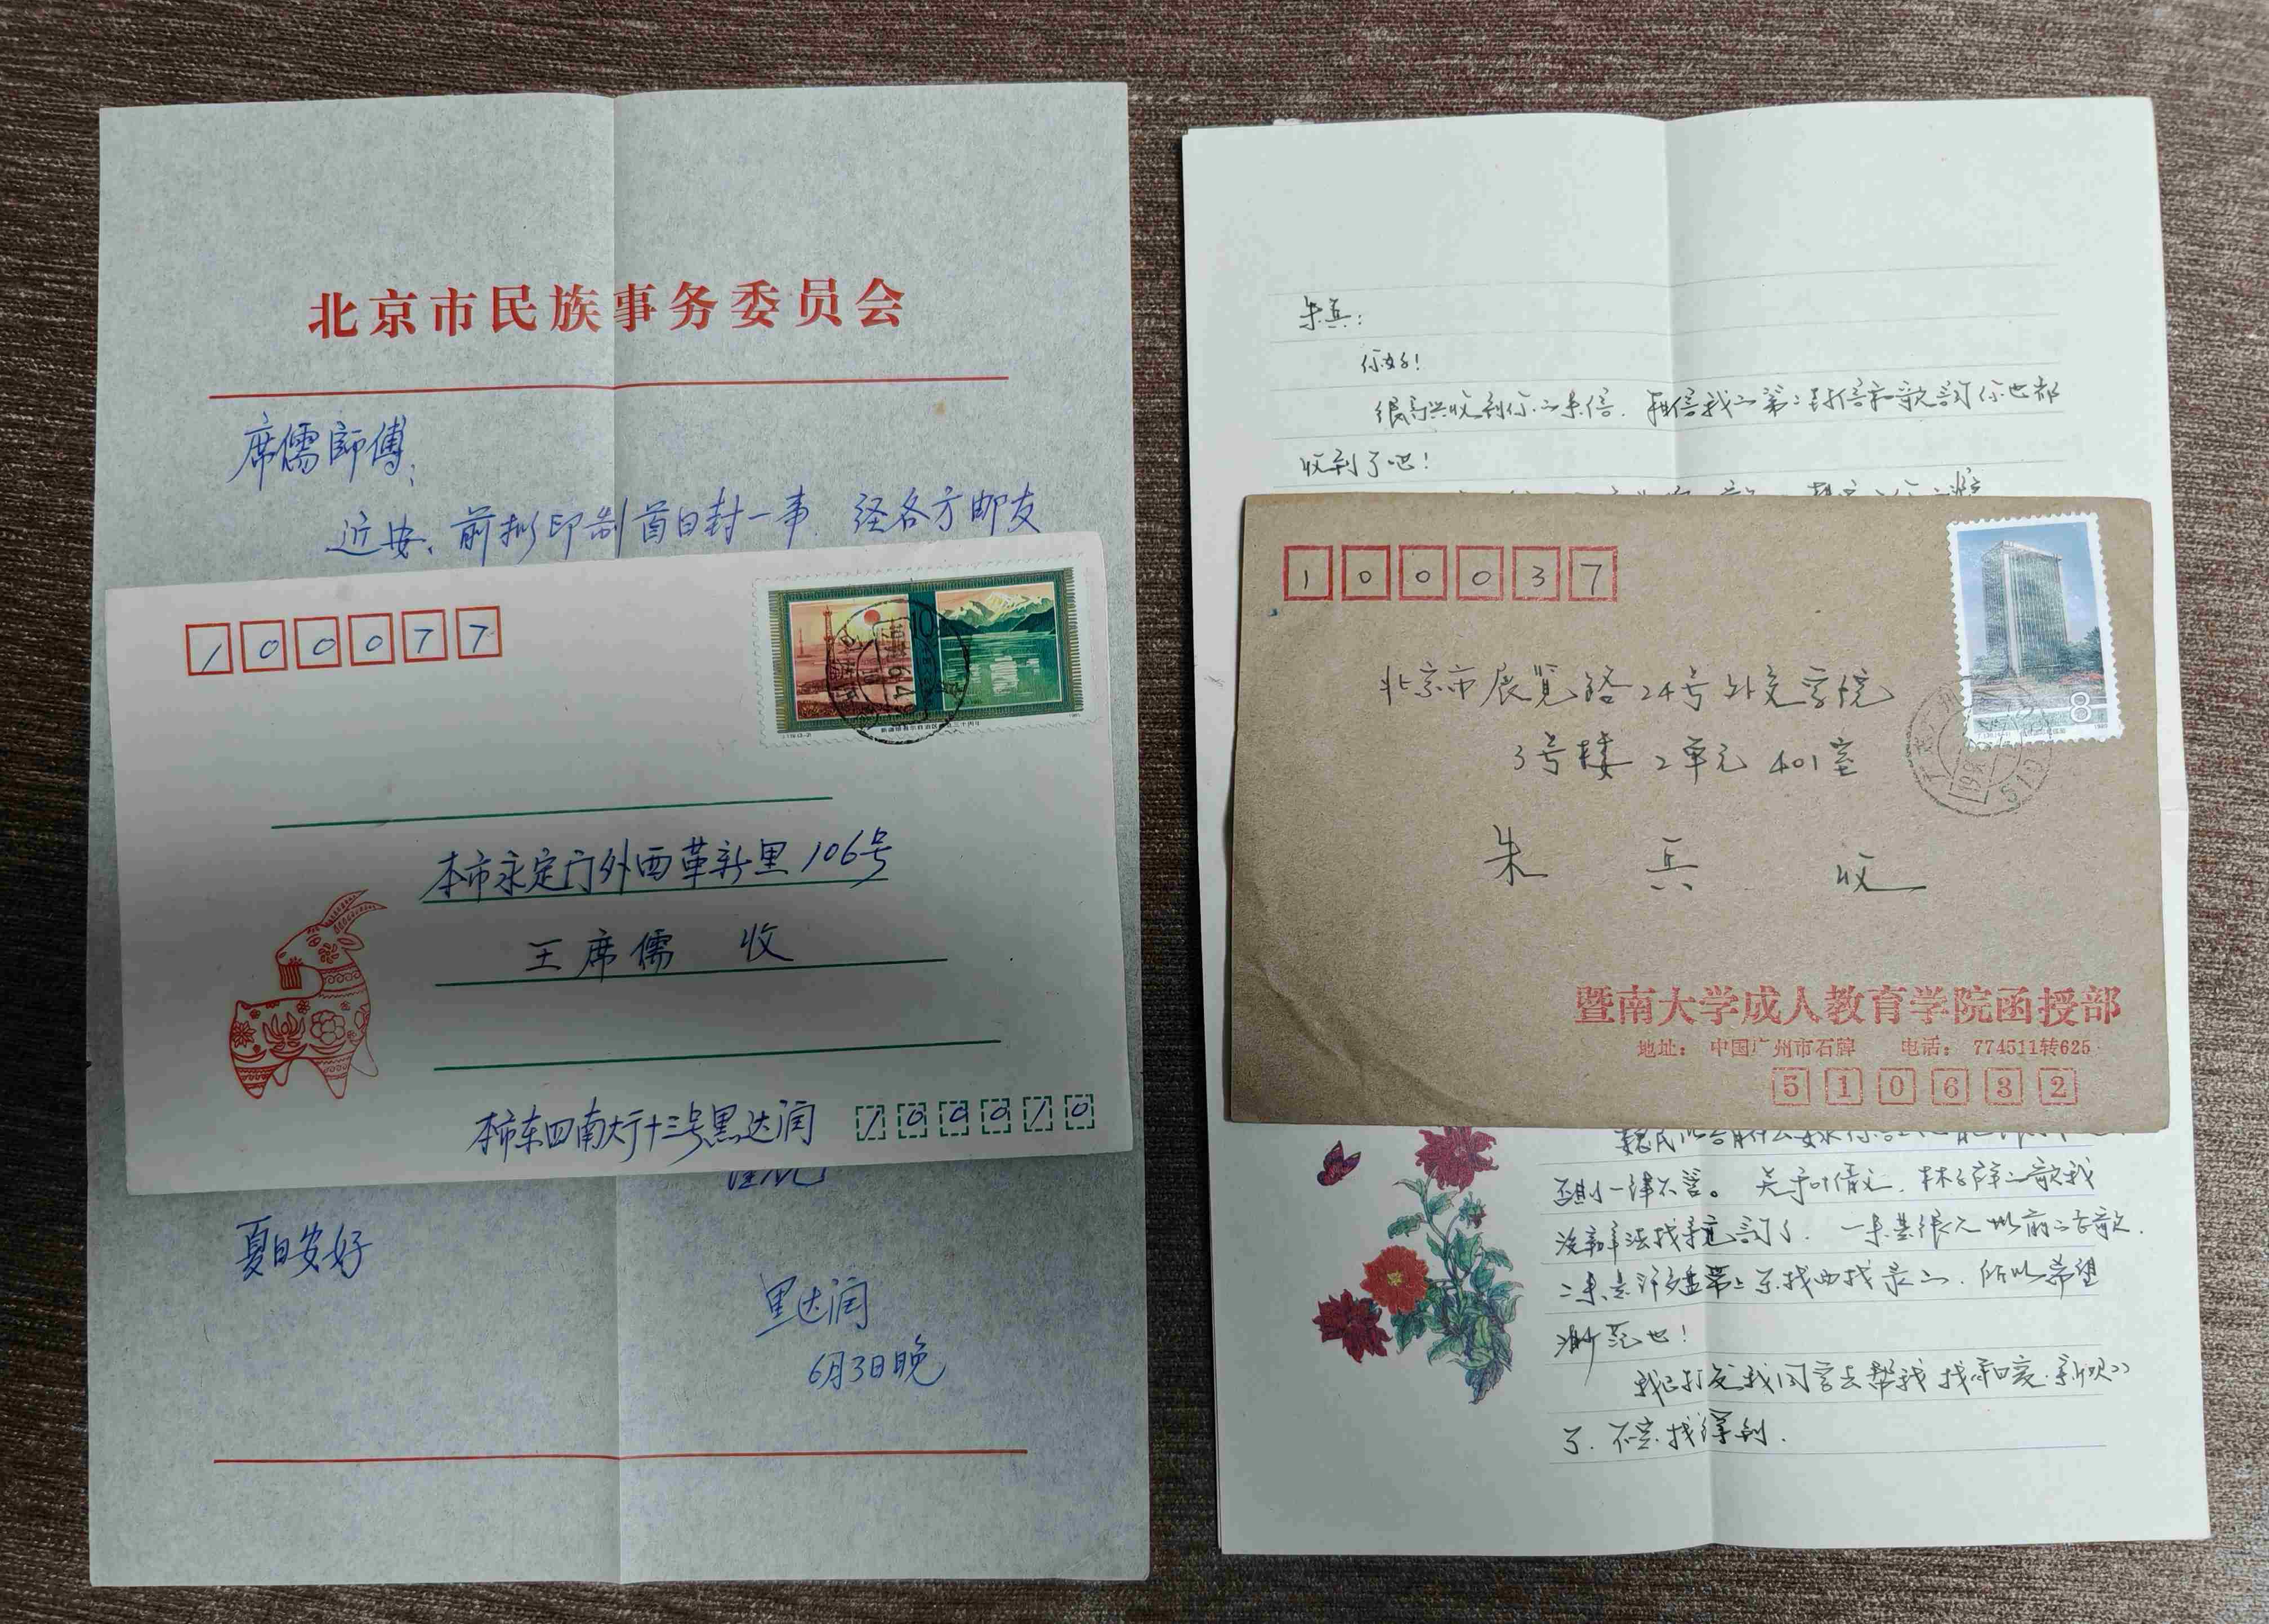 北京市民族事务委员会
席儒師傅:
近安。前拟印制首日封一事，经各方邮友
100077
10
本市永定门外西革新里106号
王席儒 收
本市东四南大街十三号黑达润 100010
夏日安好
黑达润
6月3日晚
朱兵:
你好!
很高兴收到你的来信。相信我的第二封信和歌词你也都
收到了吧!
100037
8
北京市展览路24号外交学院
3号楼2单元401室
朱兵 收
暨南大学成人教育学院函授部
地址: 中国广州市石牌 电话: 774511转625
510632
否则一律不答。关于叶倩文、林子祥的歌我
没办法找来歌词了。一来是很久以前的老歌.
二来是许多盘带上东找西找录的. 所以希望
也!
我已打发我同学去帮我找
了. 不定找得到.